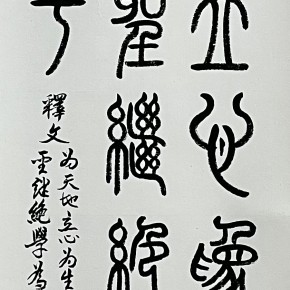 立心為
聖繼絕
釋文
為天地立心為生
聖继絶學為